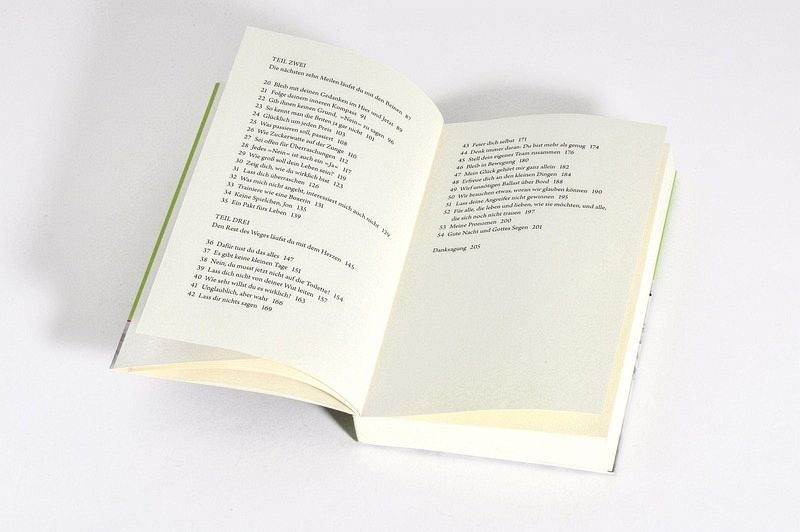 TEIL ZWEI
Die nächsten zehn Meilen läufst du mit den Beinen 87
20 Bleib mit deinen Gedanken im Hier und Jetzt 89
21 Folge deinem inneren Kompass 91
22 Gib ihnen keinen Grund, »Nein« zu sagen 96
23 So kennt man die Briten ja gar nicht 101
24 Glücklich um jeden Preis 103
25 Was passieren soll, passiert 108
26 Wie Zuckerwatte auf der Zunge 110
27 Sei offen für Überraschungen 112
28 Jedes »Nein« ist auch ein »Ja« 117
29 Wie groß soll dein Leben sein? 119
30 Zeig dich, wie du wirklich bist 123
31 Lass dich überraschen 126
32 Was mich nicht angeht, interessiert mich auch nicht 129
33 Trainiere wie eine Boxerin 131
34 Keine Spielchen, Jon 135
35 Ein Pakt fürs Leben 139
TEIL DREI
Den Rest des Weges läufst du mit dem Herzen 145
36 Dafür tust du das alles 147
37 Es gibt keine kleinen Tage 151
38 Nein, du musst jetzt nicht auf die Toilette! 154
39 Lass dich nicht von deiner Wut leiten 157
40 Wie sehr willst du es wirklich? 163
41 Unglaublich, aber wahr 166
42 Lass dir nichts sagen 169
43 Feier dich selbst 171
44 Denk immer daran: Du bist mehr als genug 174
45 Stell dein eigenes Team zusammen 176
46 Bleib in Bewegung 180
47 Mein Glück gehört mir ganz allein 182
48 Erfreue dich an den kleinen Dingen 184
49 Wirf unnötigen Ballast über Bord 188
50 Wir brauchen etwas, woran wir glauben können 190
51 Lass deine Angreifer nicht gewinnen 195
52 Für alle, die leben und lieben, wie sie möchten, und alle,
die sich noch nicht trauen 197
53 Meine Pronomen 200
54 Gute Nacht und Gottes Segen 201
Danksagung 205